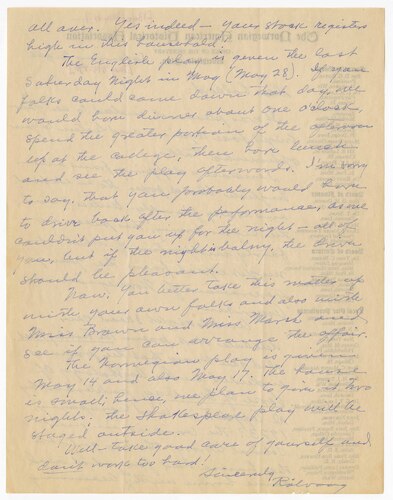 all over. Yes indeed – your stock registers
high in this household!
The English play is given the last
Saturday night in May (May 28). If you
folks could come down that day, we
would have dinner about one o'clock,
spend the greater portion of the afternoon
up at the college, then have lunch
and see the play afterwards. I'm sorry
to say, that you probably would have
to drive back after the performance, as we
couldn't put you up for the night – all of
you, but if the night is balmy, the drive
should be pleasant.
Now, you better take this matter up
with your own folks and also with
Miss Brown and Miss Marsh and
see if you can arrange the affair.
The Norwegian play is given
May 14 and also May 17. The house
is small; hence, we plan to give it two
nights; the Shakespear play will be
staged outside.
Well – take good care of yourself and
don't work too hard!
Sincerely
Rölvaag
The Norwegian American Historical Association